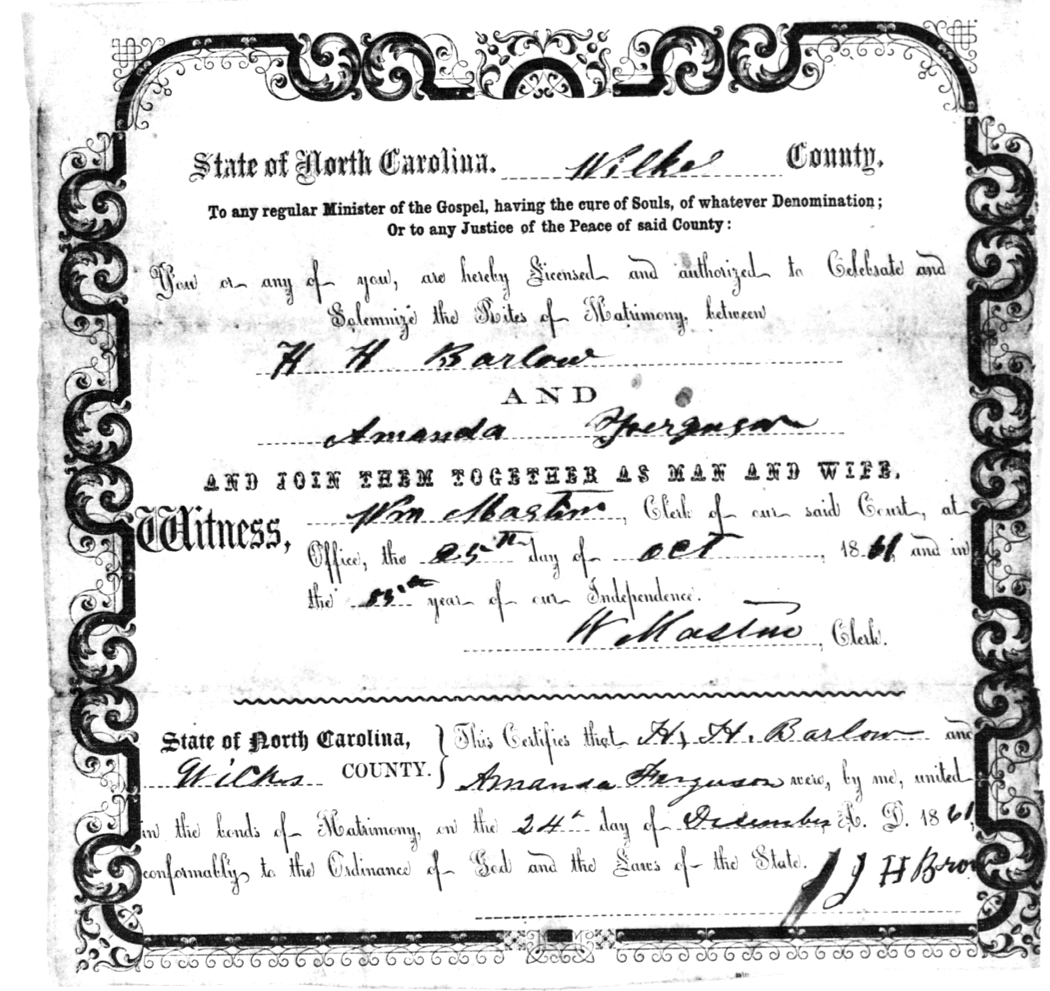 State of North Carolina. Wilkes County.
To any regular Minister of the Gospel, having the cure of Souls, of whatever Denomination;
Or to any Justice of the Peace of said County:
You or any of you, are hereby Licensed and authorized to Celebrate and
Solemnize the Rites of Matrimony, between
H H Barlow
AND
Amanda Fferguson
AND JOIN THEM TOGETHER AS MAN AND WIFE.
Witness, Wm Mastin, Clerk of our said Court, at
Office, the 25th day of Oct, 1861, and in
the year of our Independence.
W Mastin, Clerk.
State of North Carolina, Wilkes COUNTY. } This Certifies that H, H. Barlow and
Amanda Ferguson were, by me, united
in the bonds of Matrimony, on the 24th day of Desember A. D. 1861,
conformably to the Ordinance of God and the Laws of the State.
J H